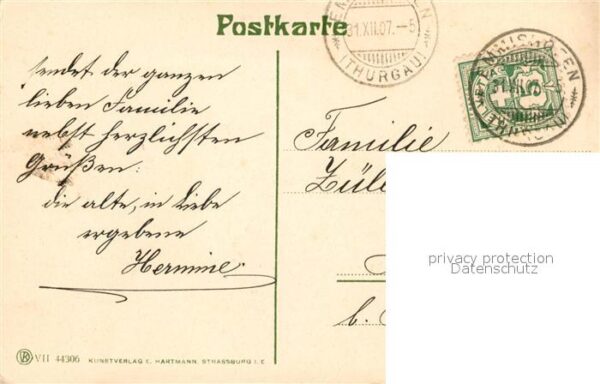 Postkarte
31.XII.07.-5
(THURGAU)
sendet der ganzen
lieben Familie
nebst herzlichsten
Grüßen:
die alte, in Liebe
ergebene
Hermine.
Familie
b.
privacy protection
Datenschutz
VII 44306 KUNSTVERLAG E. HARTMANN, STRASSBURG I. E.